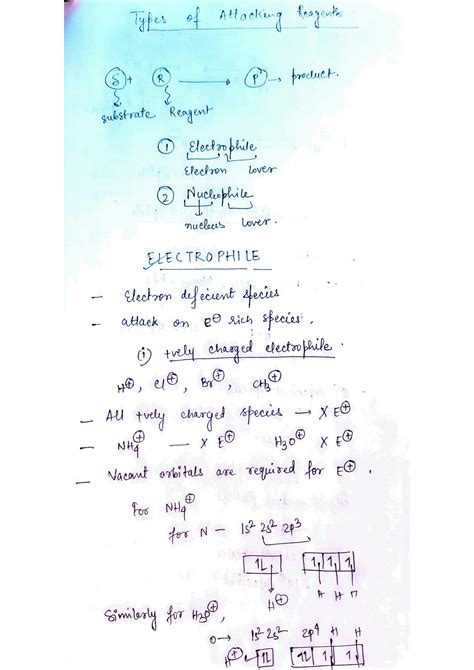 Types of Attacking Reagents
S + R → P → product.
substrate Reagent
① Electrophile
Electron lover
② Nucleophile
nucleus lover.
ELECTROPHILE
- Electron deficient species
- attack on E⊖ rich species.
(i) +vely charged electrophile.
H⊕, Cl⊕, Br⊕, CH3⊕
- All +vely charged species → X E⊕
- NH4⊕ — X E⊕ H3O⊕ X E⊕
- Vacant orbitals are required for E⊕.
For NH4⊕
for N - 1s² 2s² 2p³
1L 1 1 1
H⊕ H H H
Similarly for H3O⊕,
O → 1s² 2s² 2p⁴ H H
H⊕ 1L 1L 1 1